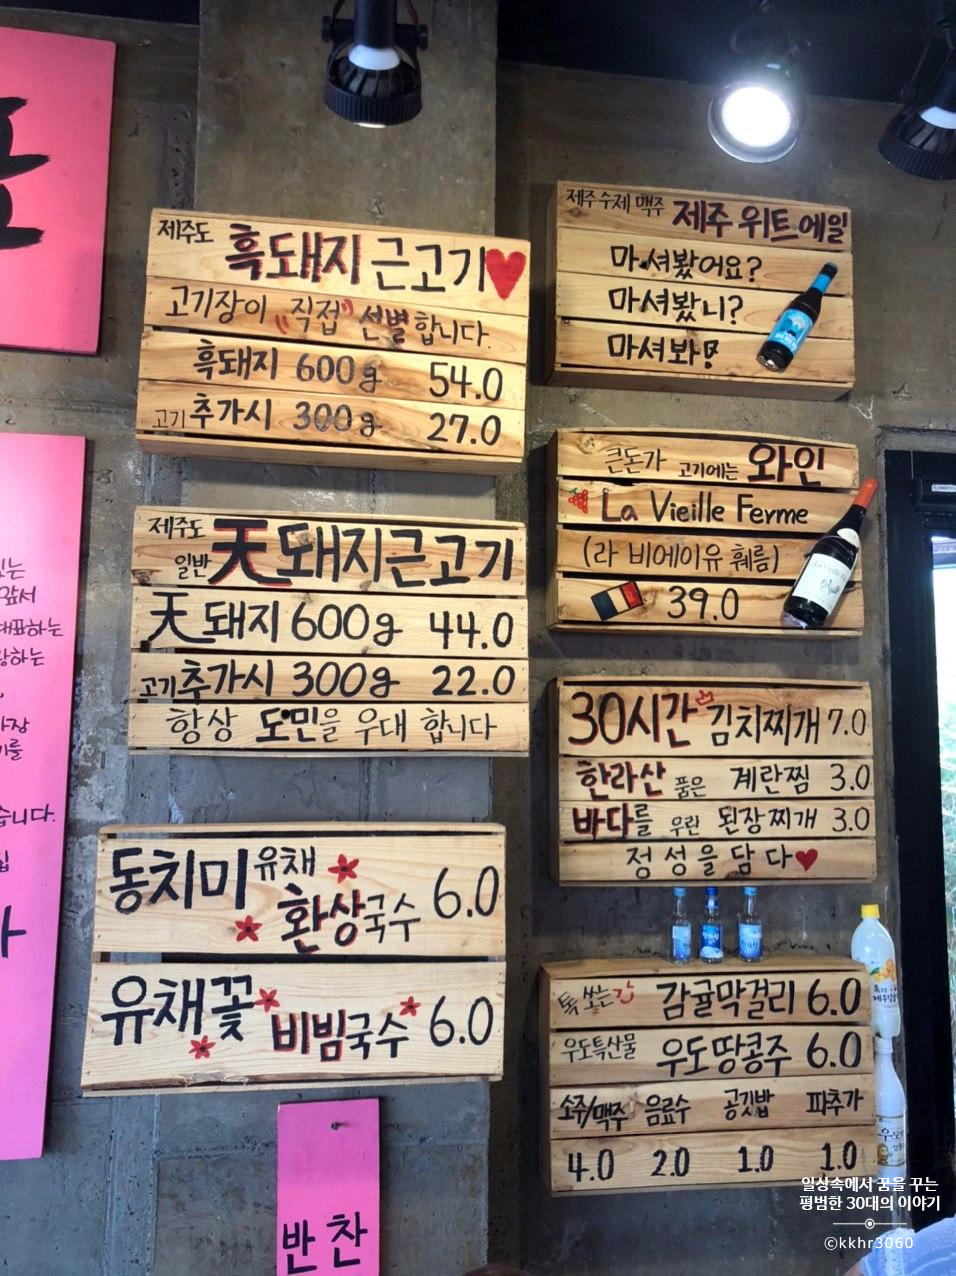 제주도 흑돼지 근고기
고기장이 "직접" 선별합니다.
흑돼지 600g 54.0
고기 추가시 300g 27.0
제주도 일반 天돼지근고기
天돼지 600g 44.0
고기 추가시 300g 22.0
항상 도민을 우대 합니다
동치미 유채 환상국수 6.0
유채꽃 비빔국수 6.0
반찬
제주 수제 맥주 제주 위트 에일
마셔봤어요?
마셔봤니?
마셔봐!
큰돈가 고기에는 와인
La Vieille Ferme
(라 비에이유 훼름)
39.0
30시간 김치찌개 7.0
한라산 품은 계란찜 3.0
바다를 우린 된장찌개 3.0
정성을 담다
톡 쏘는 감귤막걸리 6.0
우도특산물 우도땅콩주 6.0
소주/맥주 음료수 공깃밥 파추가
4.0 2.0 1.0 1.0
앞서
대표하는
습니다.
일상속에서 꿈을 꾸는
평범한 30대의 이야기
©kkhr3060